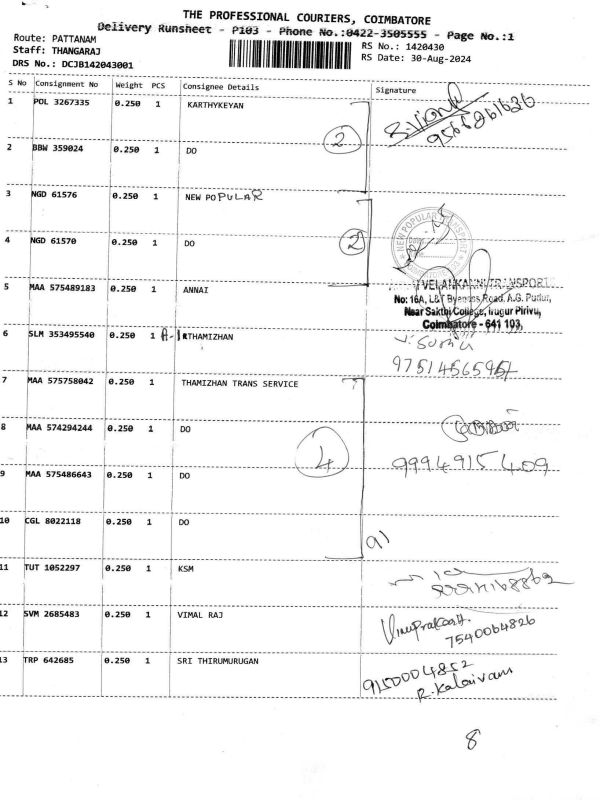 THE PROFESSIONAL COURIERS, COIMBATORE
Delivery Runsheet - P103 - Phone No.:0422-3505555 - Page No.:1
Route: PATTANAM
Staff: THANGARAJ
DRS No.: DCJB142043001
RS No.: 1420430
RS Date: 30-Aug-2024
S No Consignment No Weight PCS Consignee Details Signature
1 POL 3267335 0.250 1 KARTHYKEYAN
2
2 BBW 359024 0.250 1 DO
3 NGD 61576 0.250 1 NEW POPULAR
2
4 NGD 61570 0.250 1 DO
NEW POPULAR TRANSPORT
5 MAA 575489183 0.250 1 ANNAI
VELANKANNI TRANSPORT
No: 16A, L&T Byepass Road, A.G. Pudur,
Near Sakthi College, Irugur Pirivu,
Coimbatore - 641 103,
6 SLM 353495540 0.250 1 THAMIZHAN
7 MAA 575758042 0.250 1 THAMIZHAN TRANS SERVICE
8 MAA 574294244 0.250 1 DO
4
9994915409
9 MAA 575486643 0.250 1 DO
10 CGL 8022118 0.250 1 DO
11 TUT 1052297 0.250 1 KSM
12 SVM 2685483 0.250 1 VIMAL RAJ
7540064826
13 TRP 642685 0.250 1 SRI THIRUMURUGAN
9150004852
R. Kalaivani
8